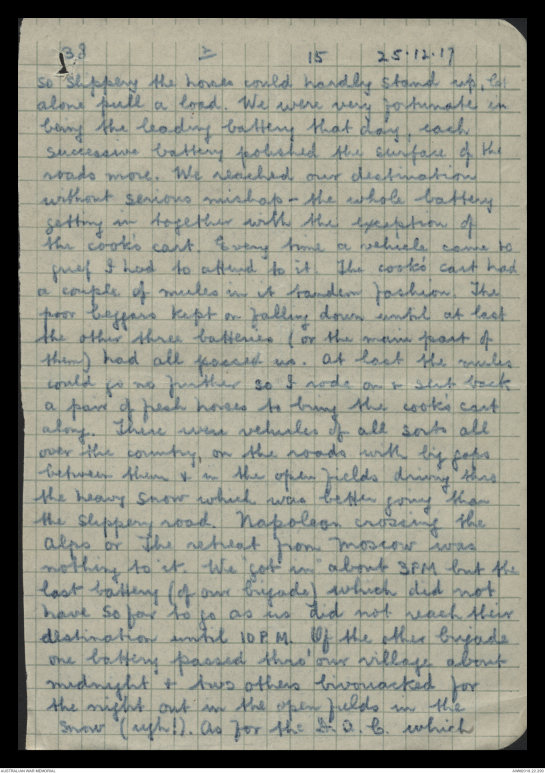 38 15 25.12.17
so slippery the horses could hardly stand up, let
alone pull a load. We were very fortunate in
being the leading battery that day, each
successive battery polished the surface of the
roads more. We reached our destination
without serious mishap - the whole battery
getting in together with the exception of
the cook's cart. Every time a vehicle came to
grief I had to attend to it. The cook's cart had
a couple of mules in it tandem fashion. The
poor beggars kept on falling down until at last
the other three batteries (or the main part of
them) had all passed us. At last the mules
could go no further so I rode on & sent back
a pair of fresh horses to bring the cook's cart
along. There were vehicles of all sorts all
over the country, on the roads with big gaps
between them & in the open fields driving thro
the heavy snow which was better going than
the slippery road. Napoleon crossing the
Alps or The retreat from Moscow was
nothing to it. We "got in" about 3PM but the
last battery (of our brigade) which did not
have so far to go as us did not reach their
destination until 10 P.M. Of the other brigade
one battery passed thro' our village about
midnight & two others bivouacked for
the night out in the open fields in the
snow (ugh!). As for the D.A.C. which
AUSTRALIAN WAR MEMORIAL